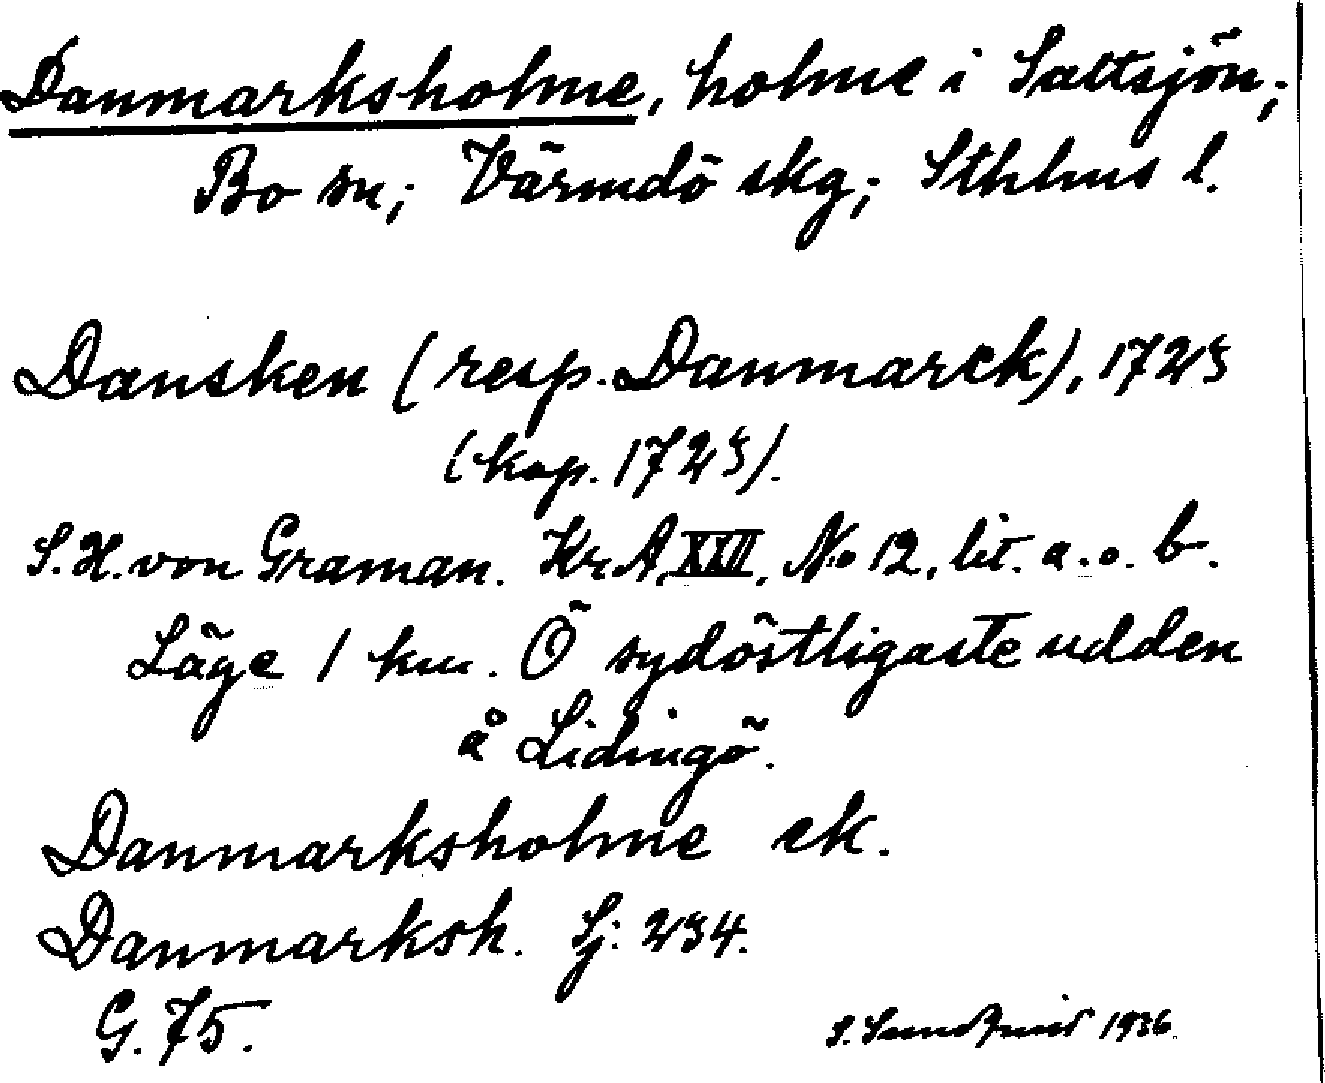 Danmarksholme, holme i Saltsjön;
Bo sn; Värmdö skg; Sthlms l.
Dansken (resp. Danmarck), 1723
(kop. 1723).
S. H. von Graman. KrA, XXII, No 12, lit. a. o. b.
Läge 1 km. Ö sydöstligaste udden
å Lidingö.
Danmarksholme ek.
Danmarksh. Sj: 234.
G. 75.
S. Sundqvist 1936.